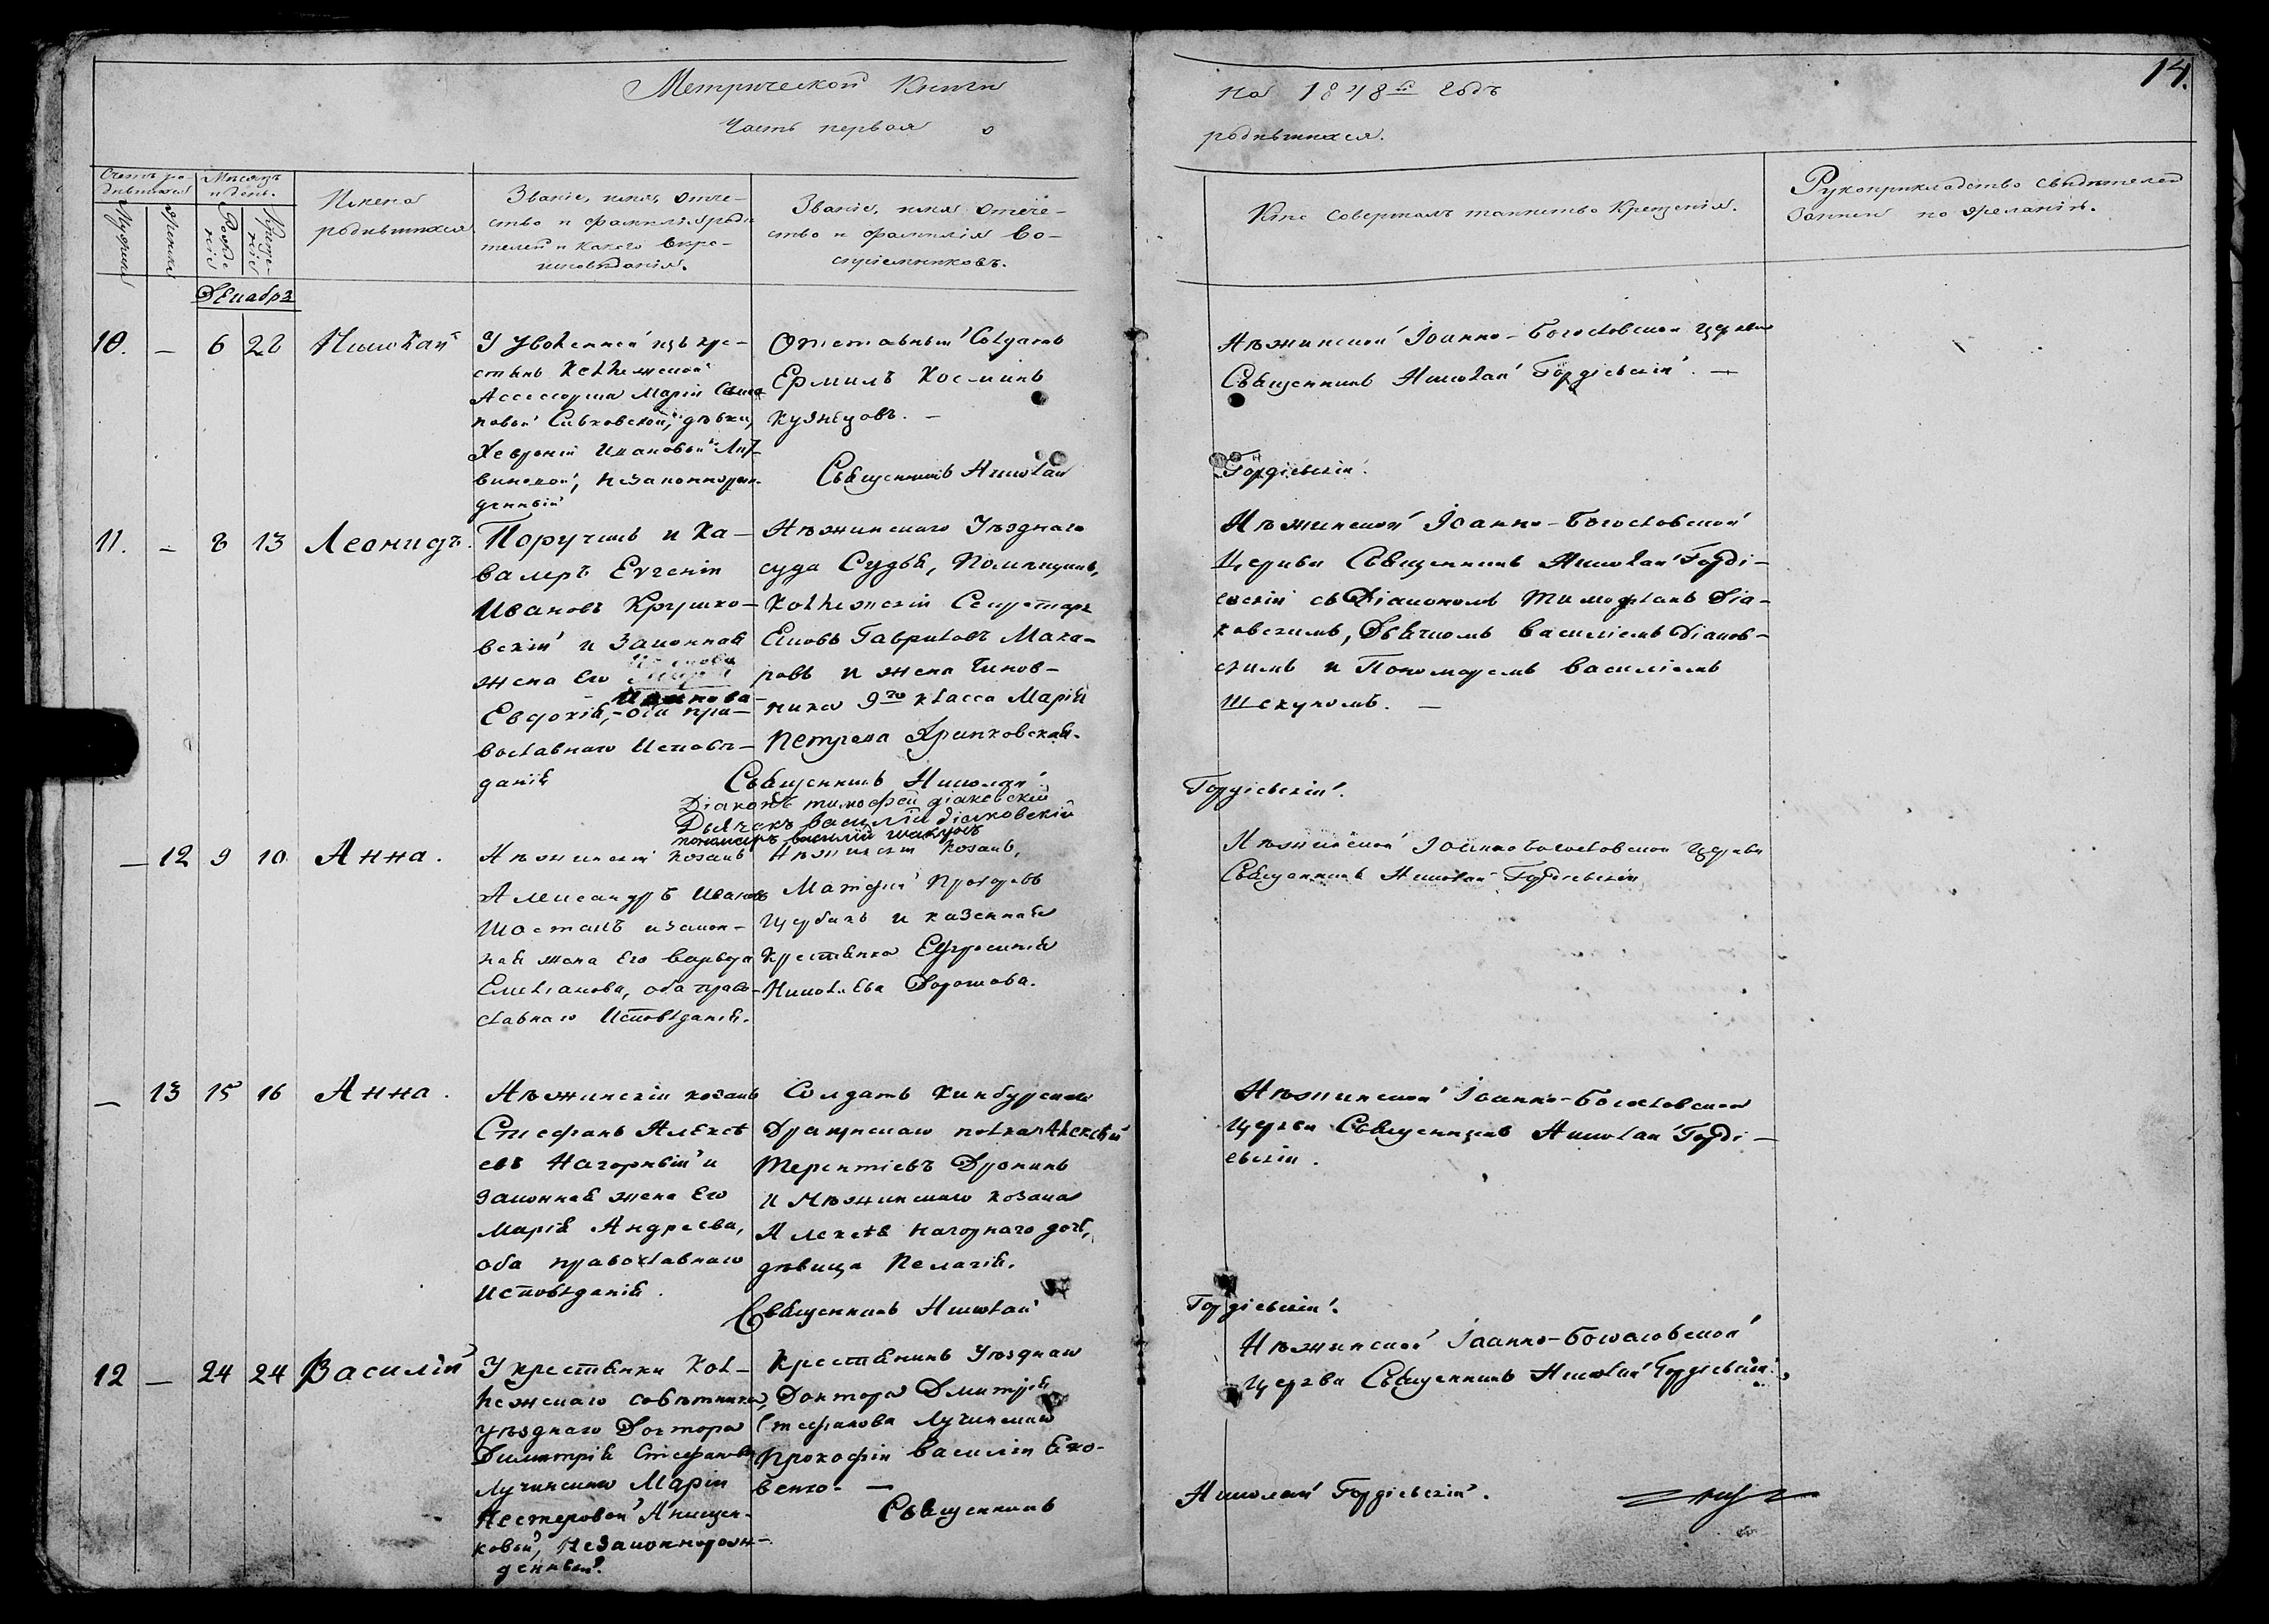 14.
Метрической Книги на 1848й годъ
Часть первая о родившихся.
Счетъ родившихся
Мужеска
Женска
Мѣсяцъ и день.
Рожденія
Крещенія
Имена родившихся
Званіе, имя, отче-
ство и фамилія роди
телей и какого вѣро-
исповѣданія.
Званіе, имя отече-
ство и фамилія во-
спріемниковъ.
Кто совершалъ таинство Крещенія.
Рукоприкладство свидѣтелей
записи по желанію.
Декабря
10. – 6 28 Николай
У уволенной изъ кре-
стьянъ Колежской
Ассесорши Маріи
повой Сивковской, дѣвки,
Хевроніи Ивановой Лит-
винской, незаконнорож-
денный
Отставный Солдатъ
Ермилъ Косминъ
Кузнецовъ. –
Священникъ Николай
Нѣжинской Іоанно-Богословской церкви
Священникъ Николай Гордіевскій. –
Гордіевскій.
11. – 8 13 Леонидъ.
Поручикъ и Ка-
валеръ Евгеній
Ивановъ Крушко-
вскій и Законная
жена Его
Иванова
Евдокія, – оба пра-
вославнаго Исповѣ-
данія
Нѣжинскаго Уѣзднаго
суда Судья, Помѣщикъ,
Колежскій Секретарь
Гавриловъ Мака-
ровъ и жена Чинов-
ника 9го класса Марія
Петрова Яринковская.
Священникъ Николай
Діаконъ тимофей діаковскій
Дьячокъ василій діаковскій
пономарь василій шакунъ
Нѣжинской Іоанно-Богословской
Церкви Священникъ Николай Горді-
евскій съ Діакономъ Тимофѣемъ Діа-
ковскимъ, Дьячкомъ Василіемъ Діаков-
скимъ и Пономаремъ Василіемъ
Шекуномъ. –
Гордіевскій.
– 12 9 10 Анна.
Нѣжинскій козакъ
Александръ Ивановъ
Шостакъ и закон-
ная жена Его Варвара
Емеліанова, оба право-
славнаго Исповѣданія.
Нѣжинскій козакъ,
Матфій
Щербакъ и казенная
крестьянка Ефросинія
Николаева Дорошова.
Нѣжинской Іоанно Богословской Церкви
Священникъ Николай Гордіевскій
– 13 15 16 Анна.
Нѣжинскій козакъ
Стефанъ Алексѣ
евъ Нагорный и
Законная жена Его
Марія Андреева,
оба православнаго
Исповѣданія.
Солдатъ Кинбурнскаго
Драгунскаго полка Алексѣй
Терентіевъ Дронинъ
и Нѣжинскаго козака
Алексѣя Нагорнаго дочь,
дѣвица Пелагія.
Священникъ Николай
Нѣжинской Іоанно-Богословской
Церкви Священникъ Николай Горді-
евскій.
Гордіевскій.
12 – 24 24 Василій
У крестьянки Кол-
лежскаго совѣтника,
уѣзднаго Доктора
Димитрія Стефанова
Лучинскаго Маріи
Нестеровой Анищен-
ковой, незаконнорож-
денный.
Крестьянинъ Уѣзднаго
Доктора Дмитрія
Стефанова Лучинскаго
Прокофій Василій Ехо-
венко. –
Священникъ
Нѣжинской Іоанно-Богословской
Церкви Священникъ Николай Гордіевскій.
Николай Гордіевскій.